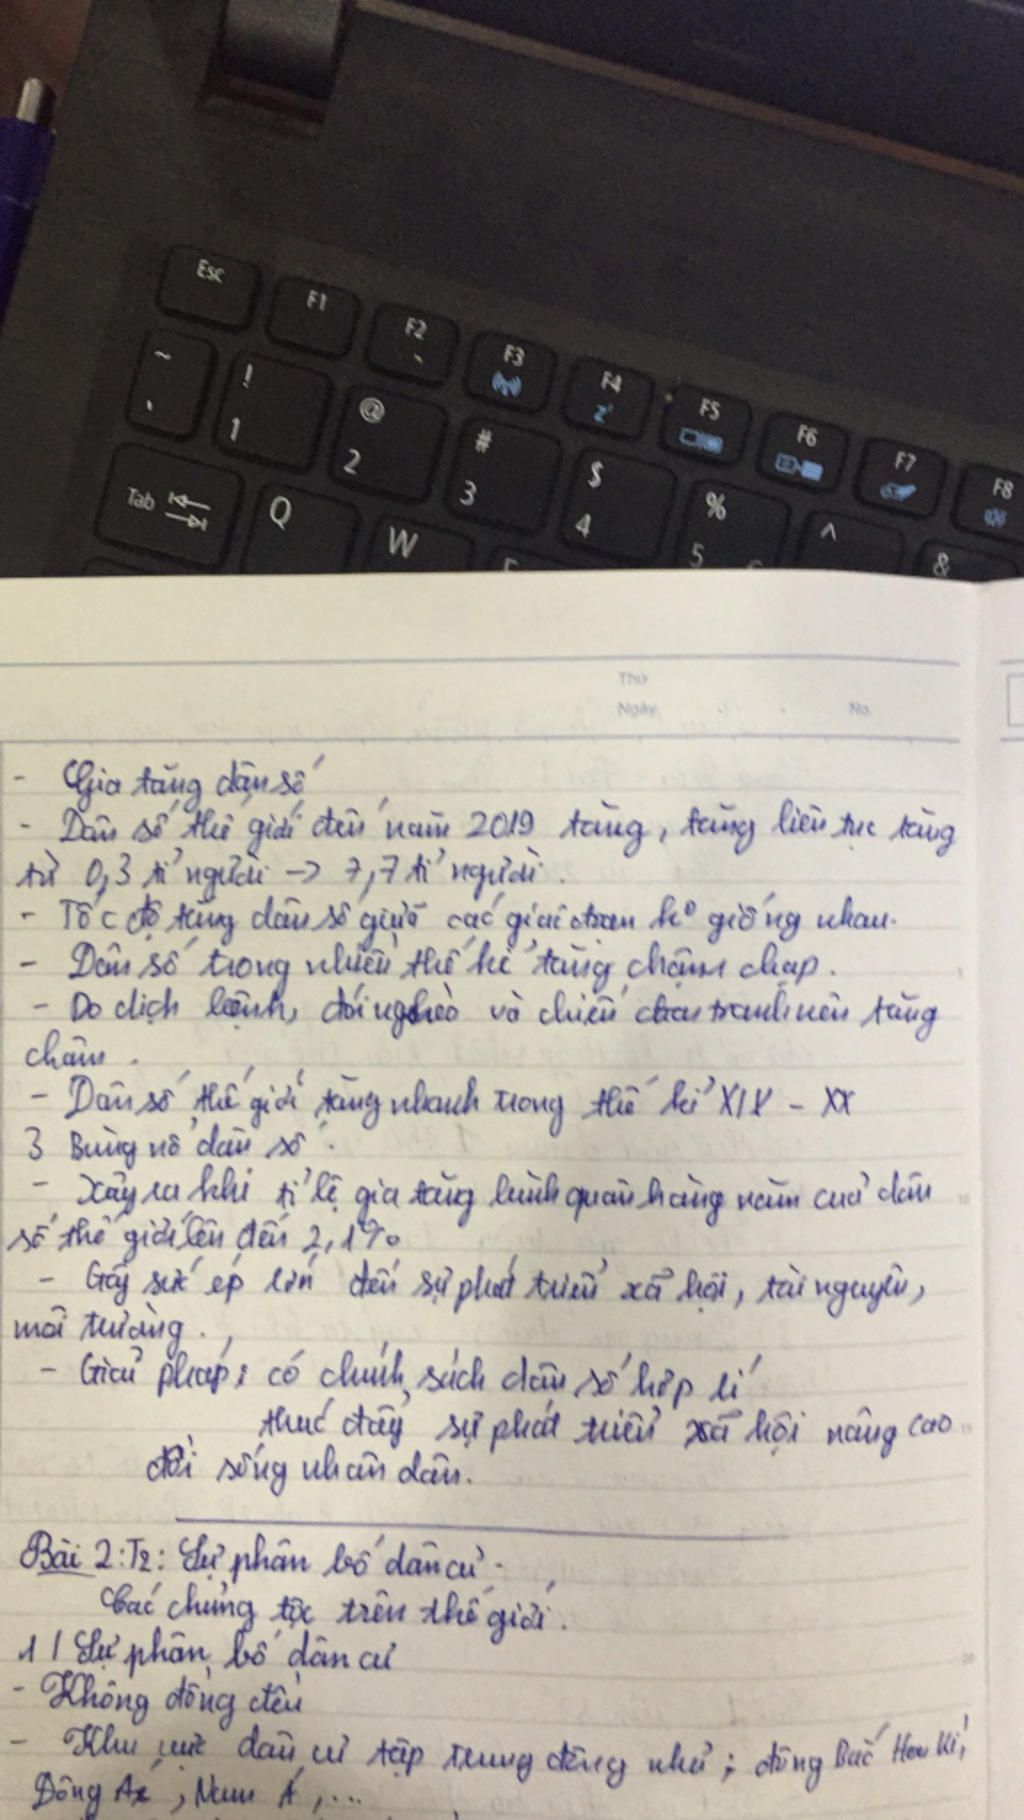 Esc F1 F2 F3 F4 F5 F6 F7 F8
~ ` ! 1 @ 2 # 3 $ 4 % 5 ^ &
Tab Q W
Thứ
Ngày No.
- Gia tăng dân số
- Dân số thế giới đến năm 2019 tăng, tăng liên tục tăng
từ 0,3 tỉ người -> 7,7 tỉ người.
- Tốc độ tăng dân số giữa các giai đoạn ko giống nhau.
- Dân số trong nhiều thế kỉ tăng chậm chạp.
- Do dịch bệnh, đói nghèo và chiến tranh nên tăng
chậm.
- Dân số thế giới tăng nhanh trong thế kỉ XIX - XX
3 Bùng nổ dân số.
- Xảy ra khi tỉ lệ gia tăng bình quân hàng năm của dân
số thế giới lên đến 2,1%
- Gây sức ép lớn đến sự phát triển xã hội, tài nguyên,
môi trường.
- Giải pháp: có chính sách dân số hợp lí
thúc đẩy sự phát triển xã hội nâng cao
đời sống nhân dân.
Bài 2: T2: Sự phân bố dân cư.
Các chủng tộc trên thế giới.
1 / Sự phân bố dân cư
- Không đồng đều
- Khu vực dân cư tập trung đông như; đông Bắc Hoa Kì,
Đông Á, Nam Á,...